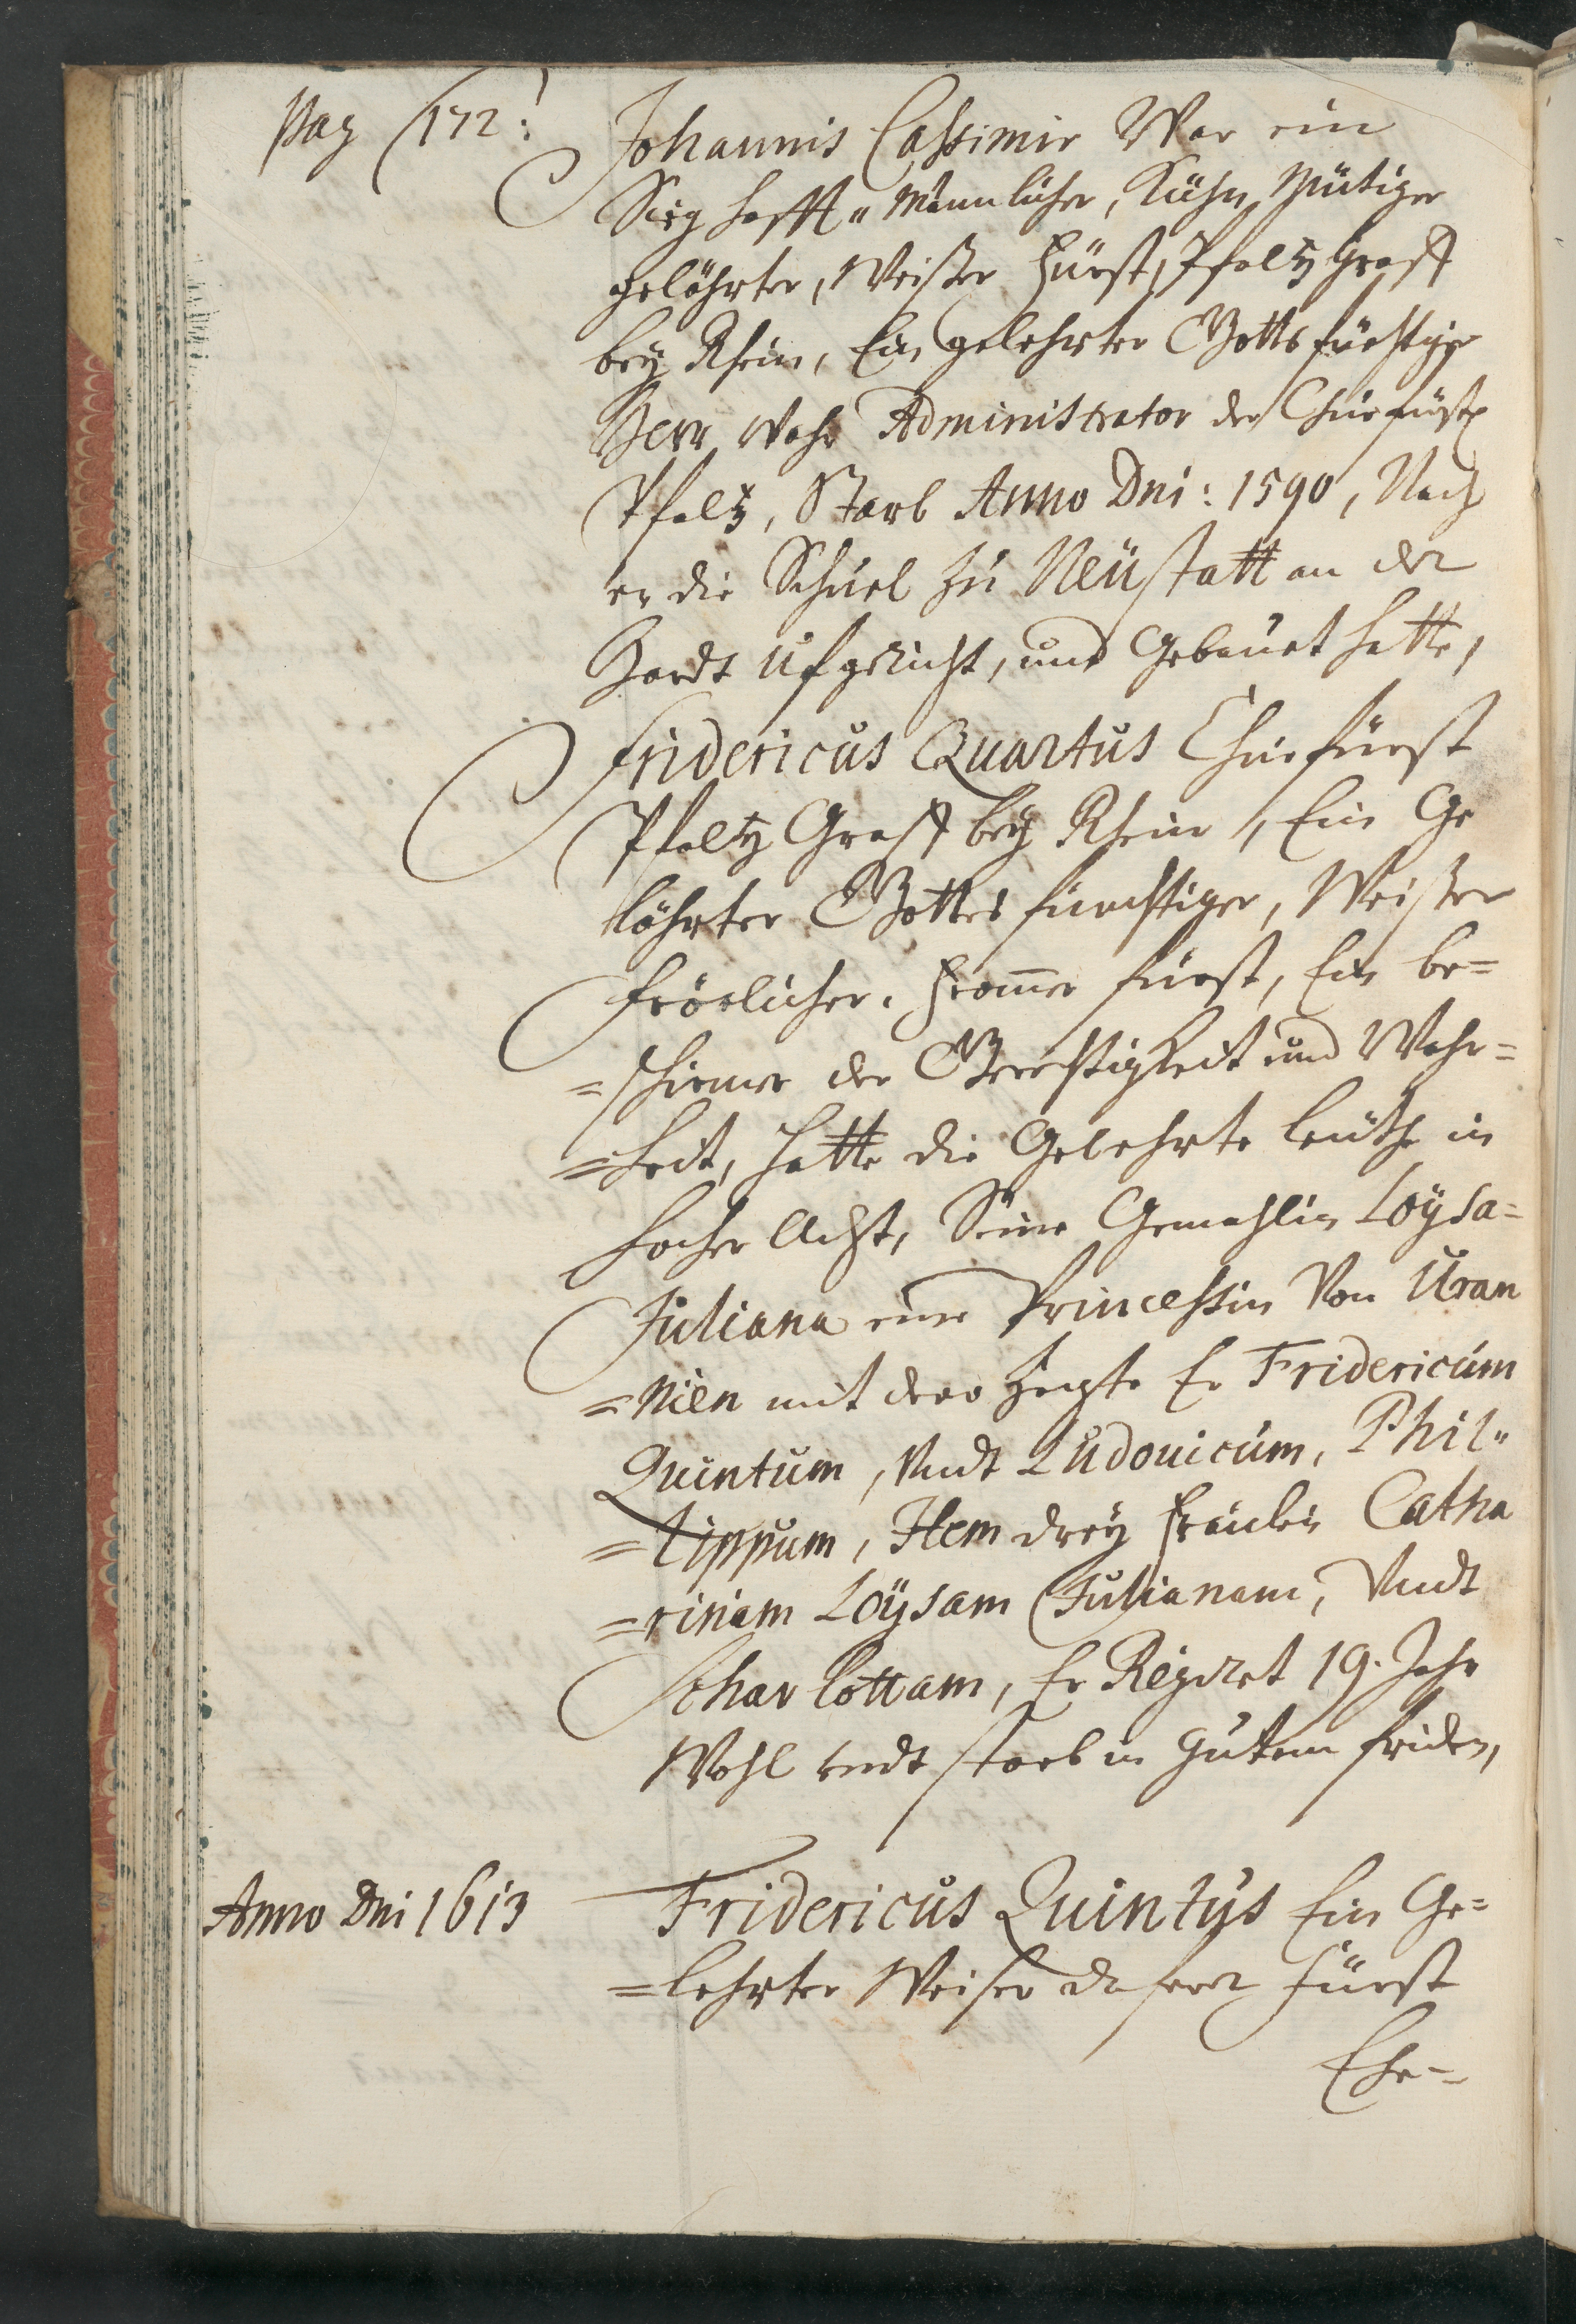 Pag 172:
Johannis Cassimir War ein
Sieghafft„ Männlicher, Kühn Mütiger
gelöhrter, Weißer Fürst, Pfaltz Graff
bey Rhein, Ein gelehrter Gottsfürchtiger
Herr wahr Administrator der Churfürstl
Pfaltz, Starb Anno Dni: 1590, Nach
er die Schuel zu Neüstatt an der
Hardt Ufgericht, und Gebauet hatte,
Fridericus Quartus Churfürst
Pfaltz Graff bey Rhein, Ein Ge
löhrter Gottes fürchtiger, Weißer
fröelicher, frommer fürst, Ein be=
=schirmer der Gerechtigkeit und Wahr=
=heit, hatte die Gelehrte leüthe in
hocher Acht, Seine Gemahlin Loÿsa=
Juliana eine Princessin Von Uran
=nien mit dero Zeugte Er Fridericum
Quintum, Undt Ludouicum, Phil„
=lippum, Item dreÿ fräulein Catha
=rinam Loÿsam Julianam, Undt
Scharlottam, Er Regiret 19. Jahr
Wohl undt starb in Gutem friden,
Anno Dni 1613
Fridericus Quintus Ein Ge=
=lehrter Weiser Fürst
Ehr=